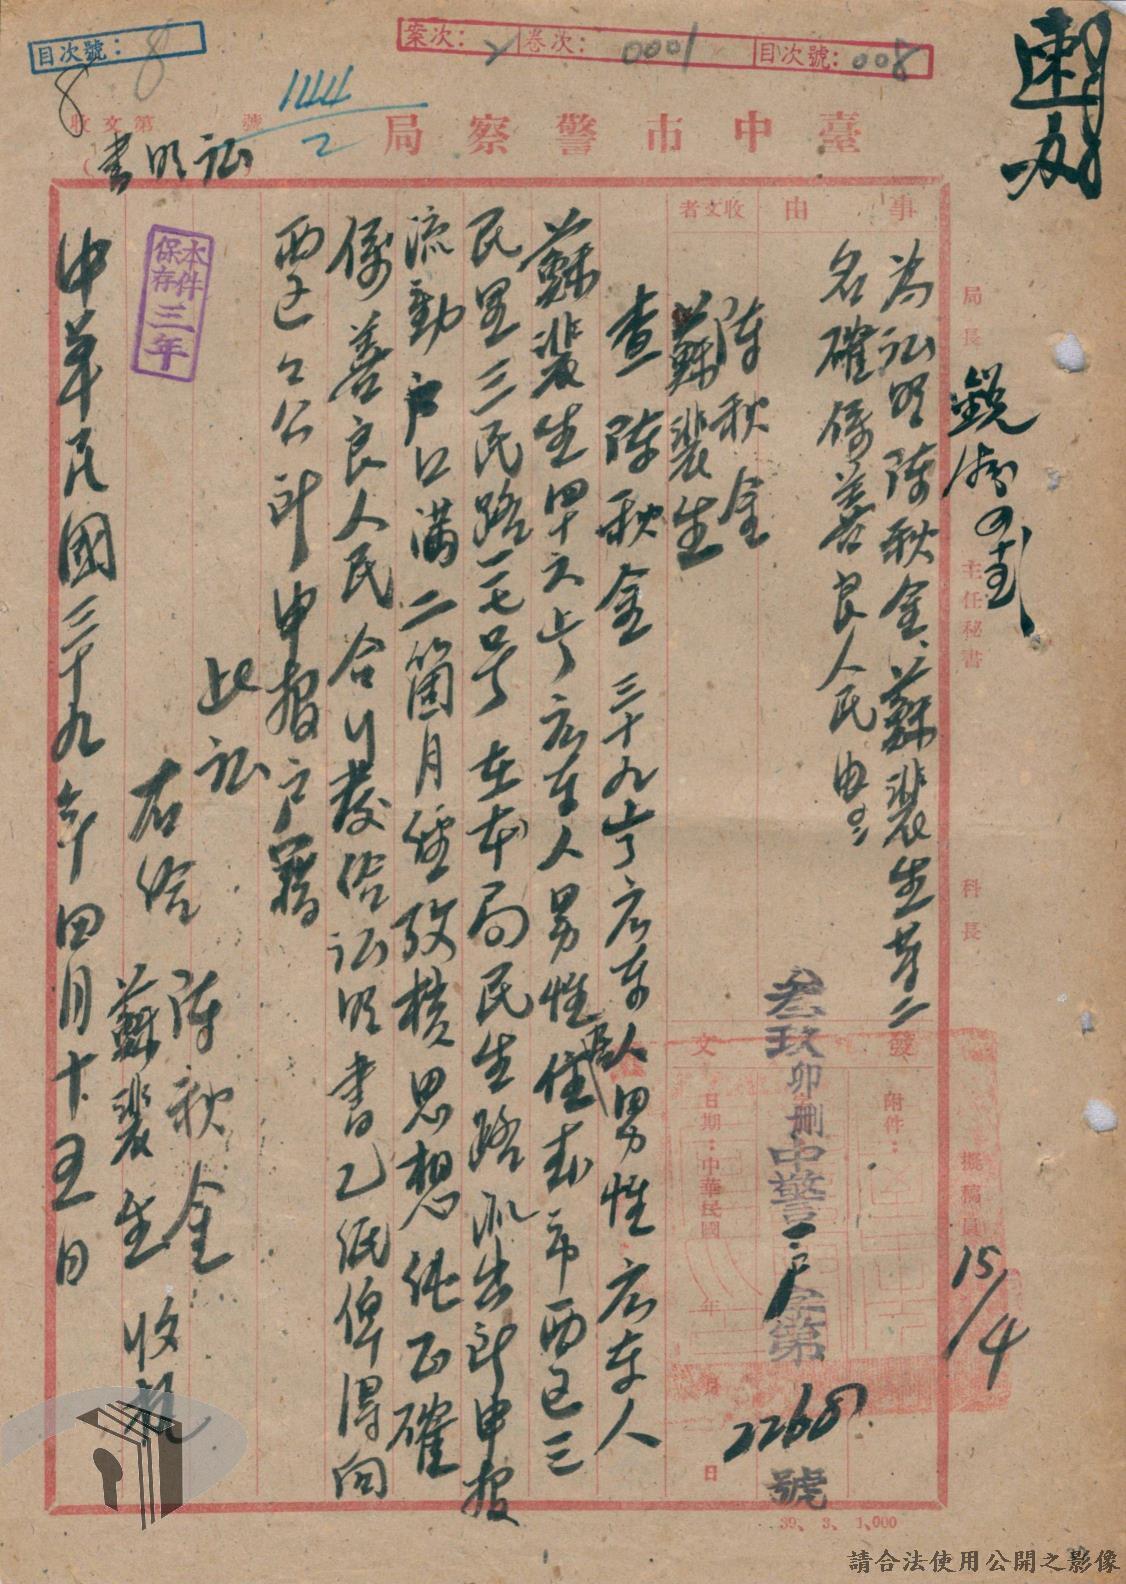 目次號：8
8
案次：
卷次：0001
目次號：008
144/2
收文第 號
臺中市警察局
證明書
速辦
事由
為証明陳秋金、蘇裴生等二
名確係善良人民由
收文者
陳秋金
蘇裴生
局長
主任秘書
科長
擬稿員
15/4
發文
附件：
日期：中華民國 年 月 日
叁玖卯刪中警戶字第2268號
查陳秋金三十九歲广東人男性
蘇裴生四十六歲广東人男性住本市西區三
民里三民路一七号在本局民生路派出所申报
流動户口满二箇月經攷核思想純正確
係善良人民合行發給証明書乙纸俾得向
西區公所申报户籍
此証
右給
陳秋金
蘇裴生
收执
本件保存三年
中華民國三十九年四月十五日
39、3、1,000
請合法使用公開之影像